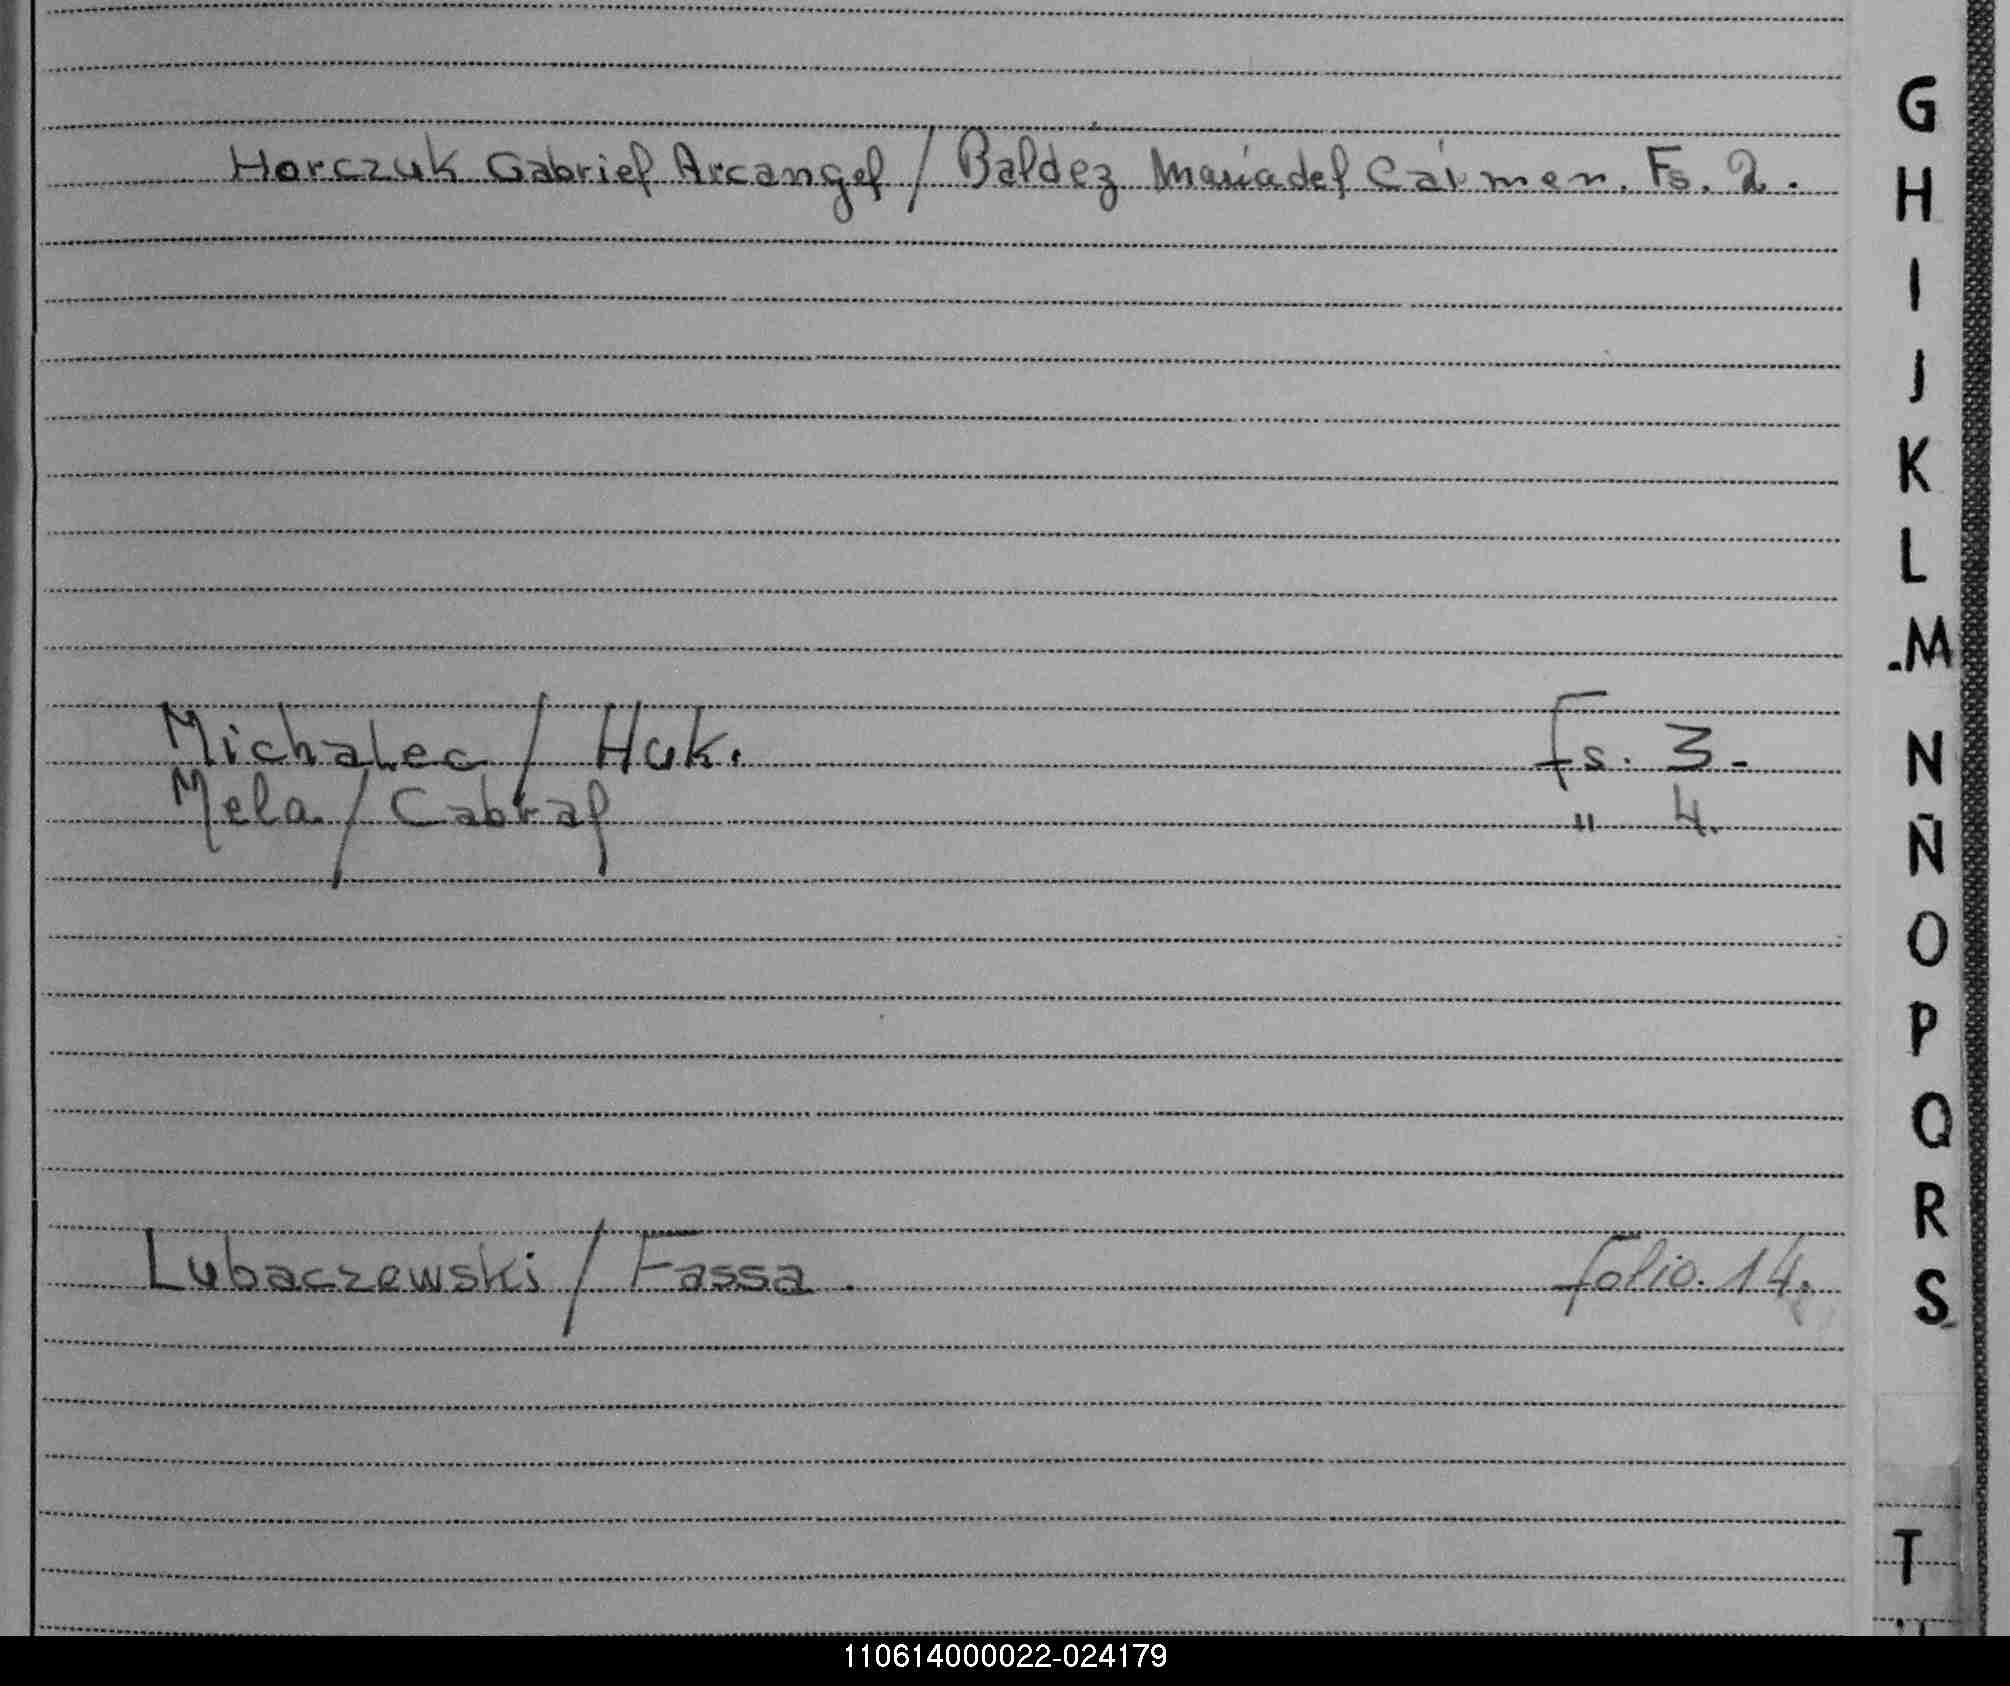 Horczuk Gabriel Arcangel / Baldéz María del Cármen. Fs. 2.
Michalec / Huk. Fs. 3.-
Mela / Cabral " 4.
Lubaczewski / Fassa. folio. 14.
G
H
I
J
K
L
.M
N
Ñ
O
P
Q
R
S
T
110614000022-024179